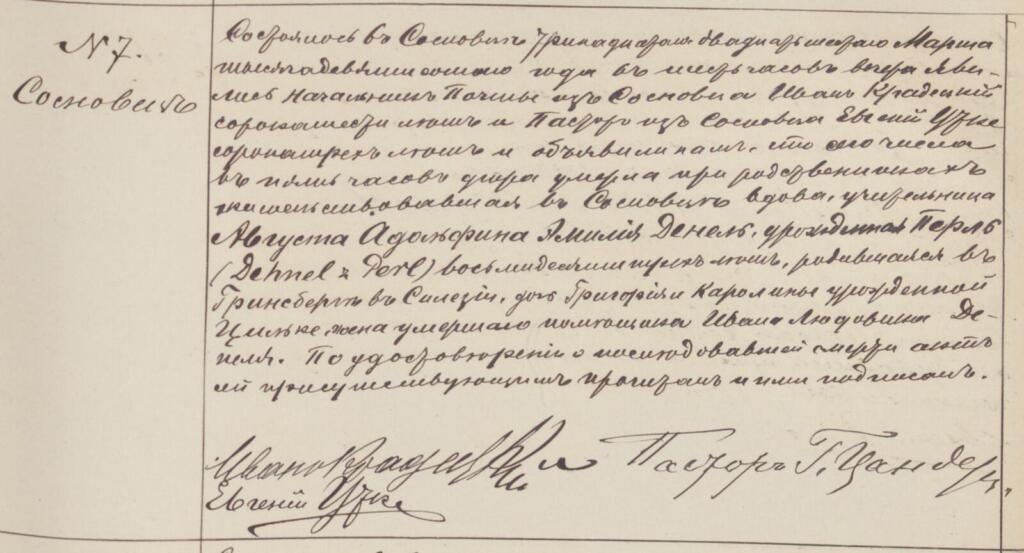 N 7.
Сосновицъ
Состоялось въ Сосновицѣ тринадцатаго двадцать шестаго Марта
тысяча девятисотаго года въ шесть часовъ вечера. Яви-
лись Начальникъ Почты изъ Сосновца Иванъ Крадецкій
сорока шести лѣтъ и Пасторъ изъ Сосновца Евгеній Уцке
сорока трехъ лѣтъ и объявили намъ, что сего числа
въ пять часовъ утра умерла при родственникахъ
жительствовавшая въ Сосновицѣ вдова, учительница
Августа Адольфина Эмилія Денель, урожденная Перль
(Dehnel z Perl) восьмидесяти трехъ лѣтъ, родившаяся въ
Гринсбергѣ въ Силезіи, дочь Григорія и Каролины урожденной
Цильке жена умершаго помощника Ивана Людовика Де-
неля. По удостовѣреніи о послѣдовавшей смерти актъ
сей присутствующимъ прочитанъ и ими подписанъ.
Иванъ
Пасторъ Г. Цандеръ
Евгеній Уцке